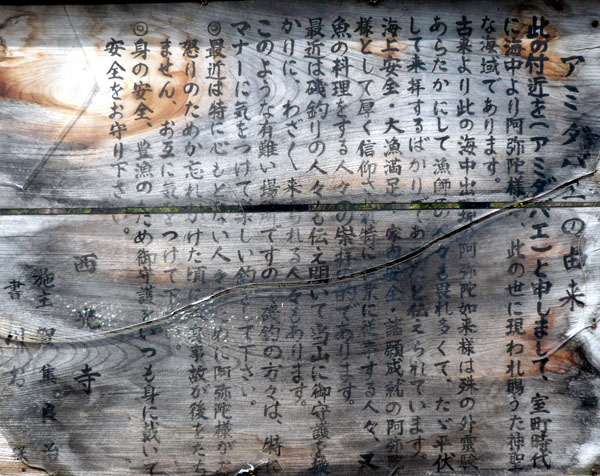 アミダバエの由来
此の付近を(アミダバエ)と申しまして、室町時代
に海中より阿弥陀様が、此の世に現われ賜うた神聖
な海域であります。
古来より此の海中出現 阿弥陀如来様は殊の外霊験
あらたかにして漁師の人々も畏れ多くて、たゞ平伏
して来拝するばかりであったと伝えられています。
海上安全 大漁満足 家内安全・諸願成就の阿弥陀
様として厚く信仰され特に漁業に従事する人々、又
魚の料理をする人々の崇拝の的であります。
最近は磯釣りの人々も伝え聞いて当山に御守護を授
かりに、わざ〱来られる人々もあります。
このような有難い場所ですので磯釣の方々は、特に
マナーに気をつけて楽しい釣をして下さい。
◎最近は特に心もとない人々のために阿弥陀様がお
怒りのためか忘れかけた頃に事故が後をたち
ません、お互に気をつけて下さい。
◎身の安全、豊漁のため御守護をいつも身に戴いて
安全をお守り下さい。
西光寺
施主 集 良治
書